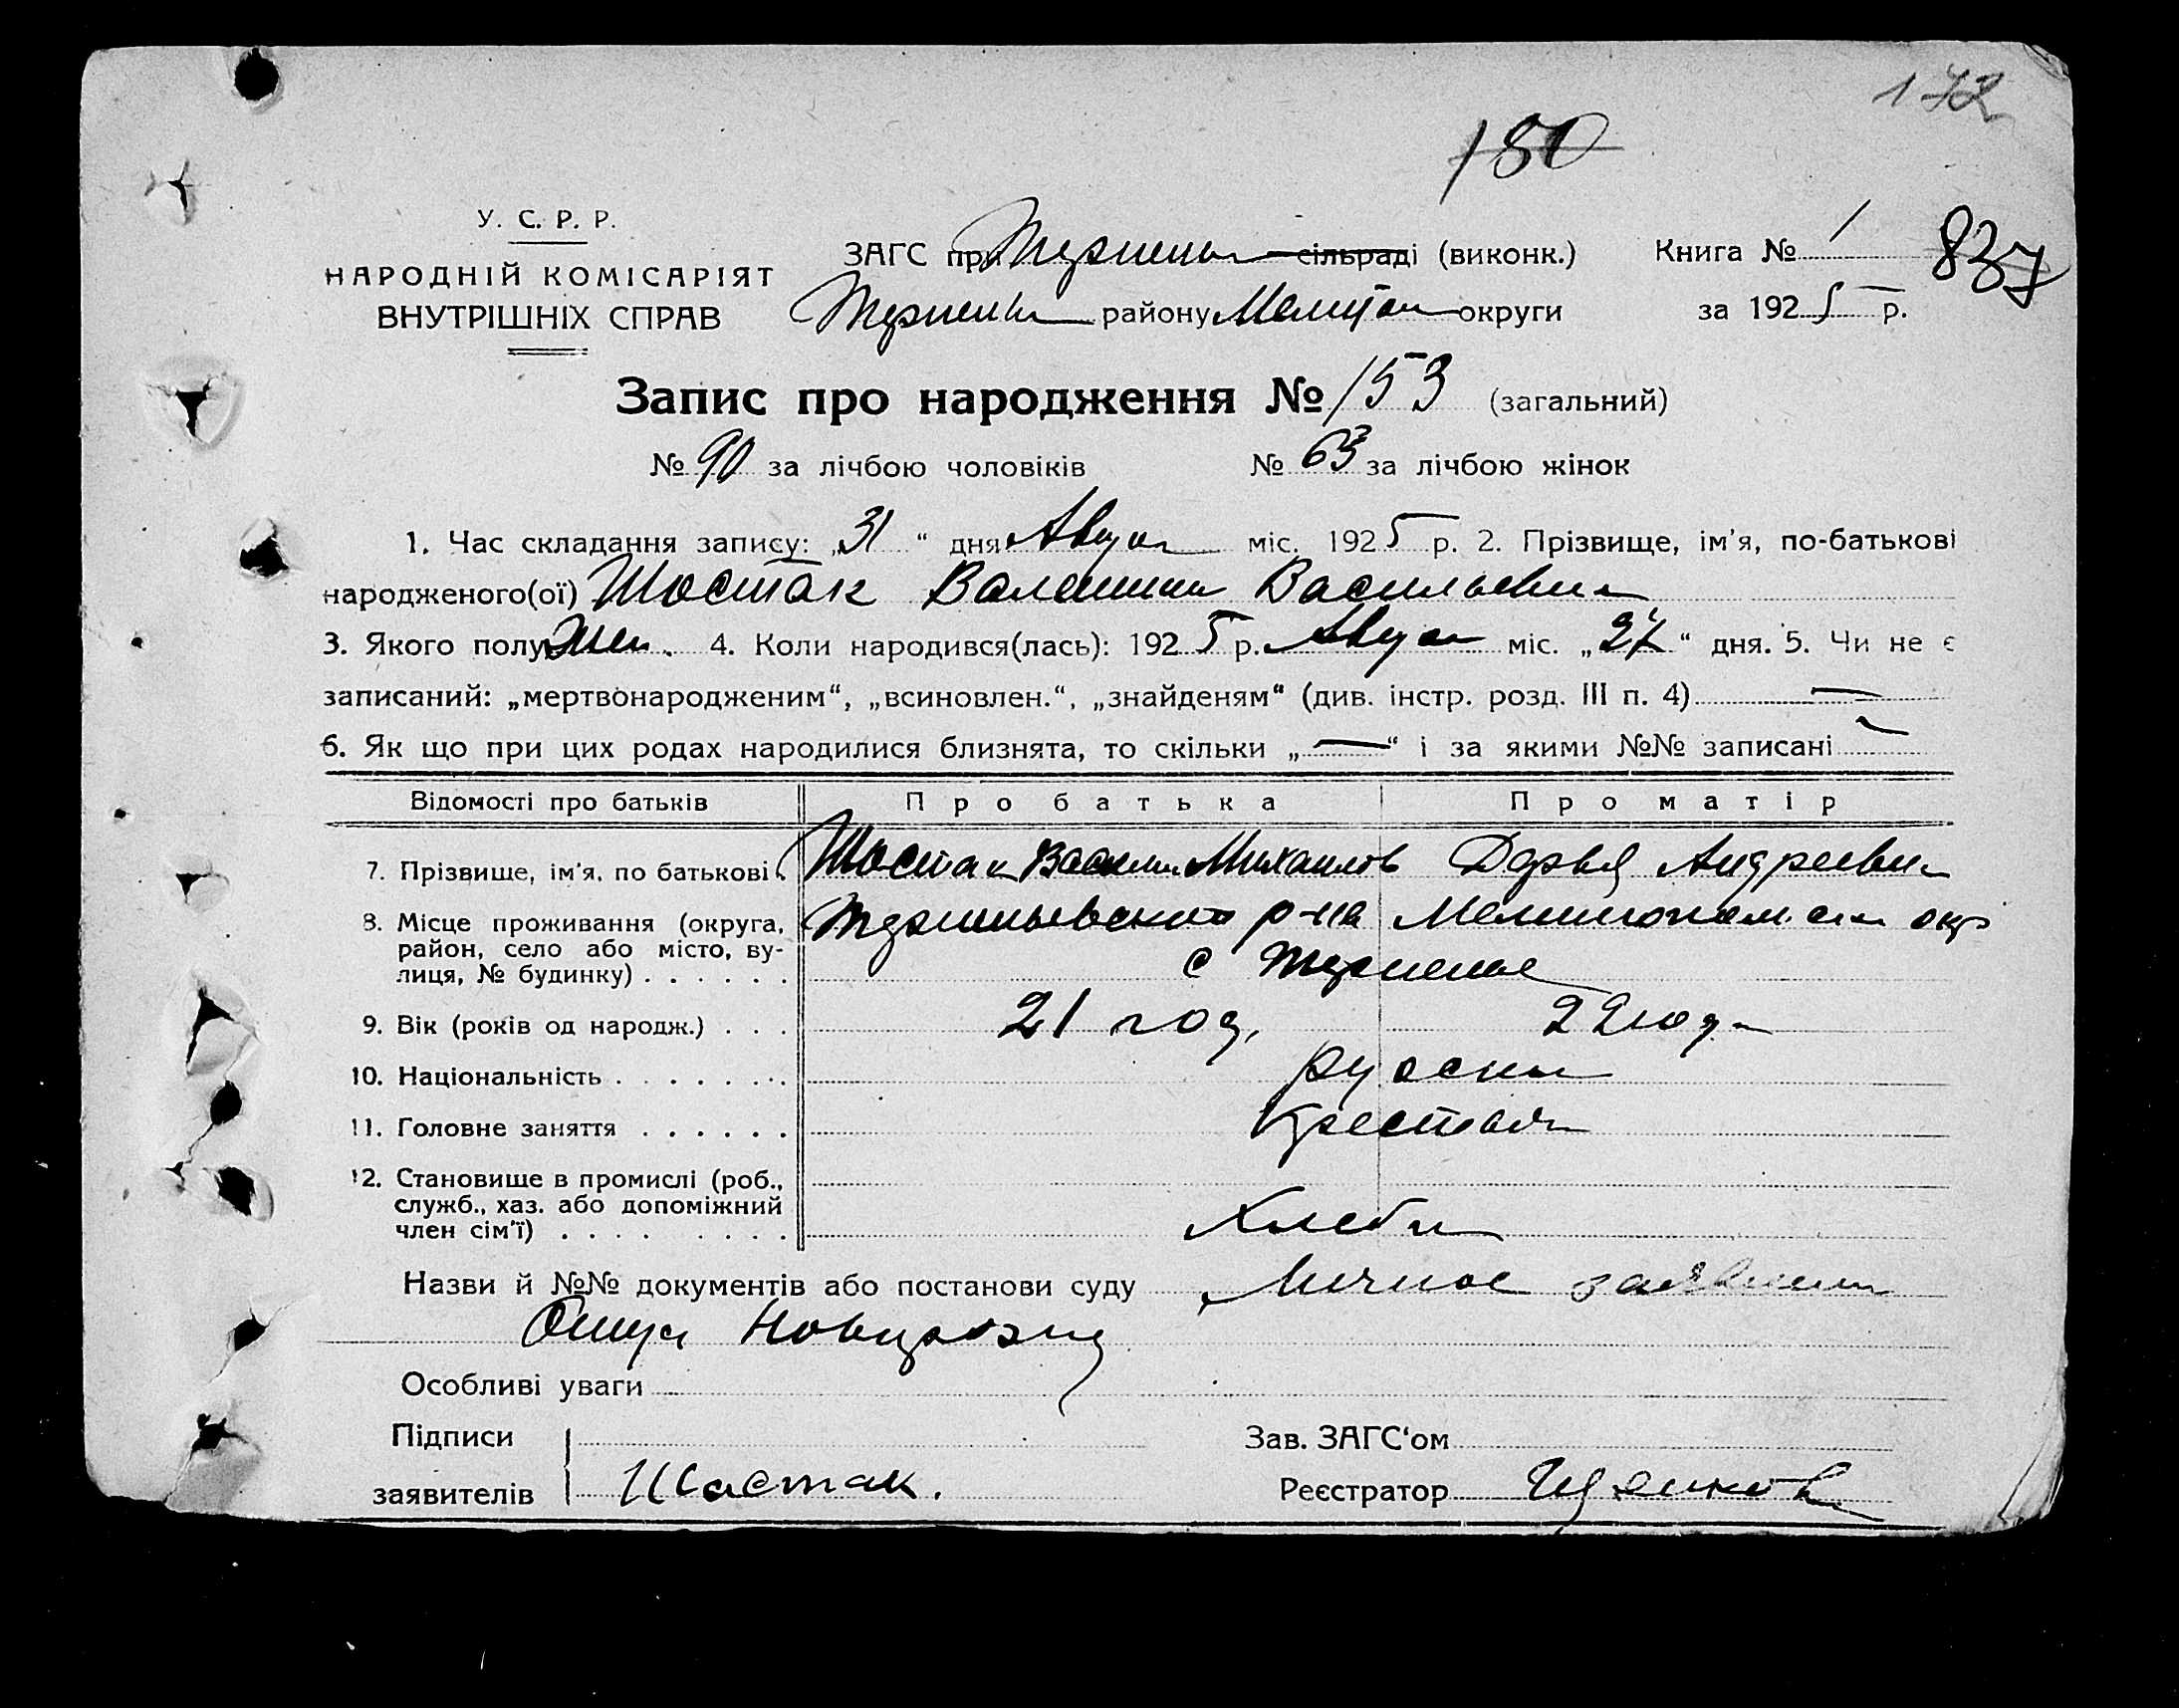 172
180
У. С. Р. Р.
НАРОДНІЙ КОМІСАРІЯТ
ВНУТРІШНІХ СПРАВ
ЗАГС при сільраді (виконк.) Книга № 1 837
району Мелитоп округи за 1925 р.
Запис про народження № 153 (загальний)
№ 90 за лічбою чоловіків № 63 за лічбою жінок
1. Час складання запису: „31“ дня Авгус міс. 1925 р. 2. Прізвище, ім'я, по-батькові
народженого(ої) Шостак Валентин Васильевна
3. Якого полу Жен. 4. Коли народився(лась): 1925 р. Авгус міс. „27“ дня. 5. Чи не є
записаний: „мертвонародженим“, „всиновлен.“, „знайденям“ (див. інстр. розд. III п. 4) —
6. Як що при цих родах народилися близнята, то скільки „—“ і за якими №№ записані —
Відомості про батьків Про батька Про матір
7. Прізвище, ім'я, по батькові Шостак Василий Михайлов Дарья Андреевн
8. Місце проживання (округа, район, село або місто, ву-лиця, № будинку) . . . . . . р-на Мелитопольск окр
с Терпение
9. Вік (років од народж.) . . . 21 год, 22 года
10. Національність . . . . . . . . русски
11. Головне заняття . . . . . . Крестьян
12. Становище в промислі (роб., служб., хаз. або допоміжний член сім'ї) . . . . . . . . Хлебп
Назви й №№ документів або постанови суду Личное заявление
Особливі уваги
Підписи Зав. ЗАГС‘ом
заявителів Шостак. Реєстратор